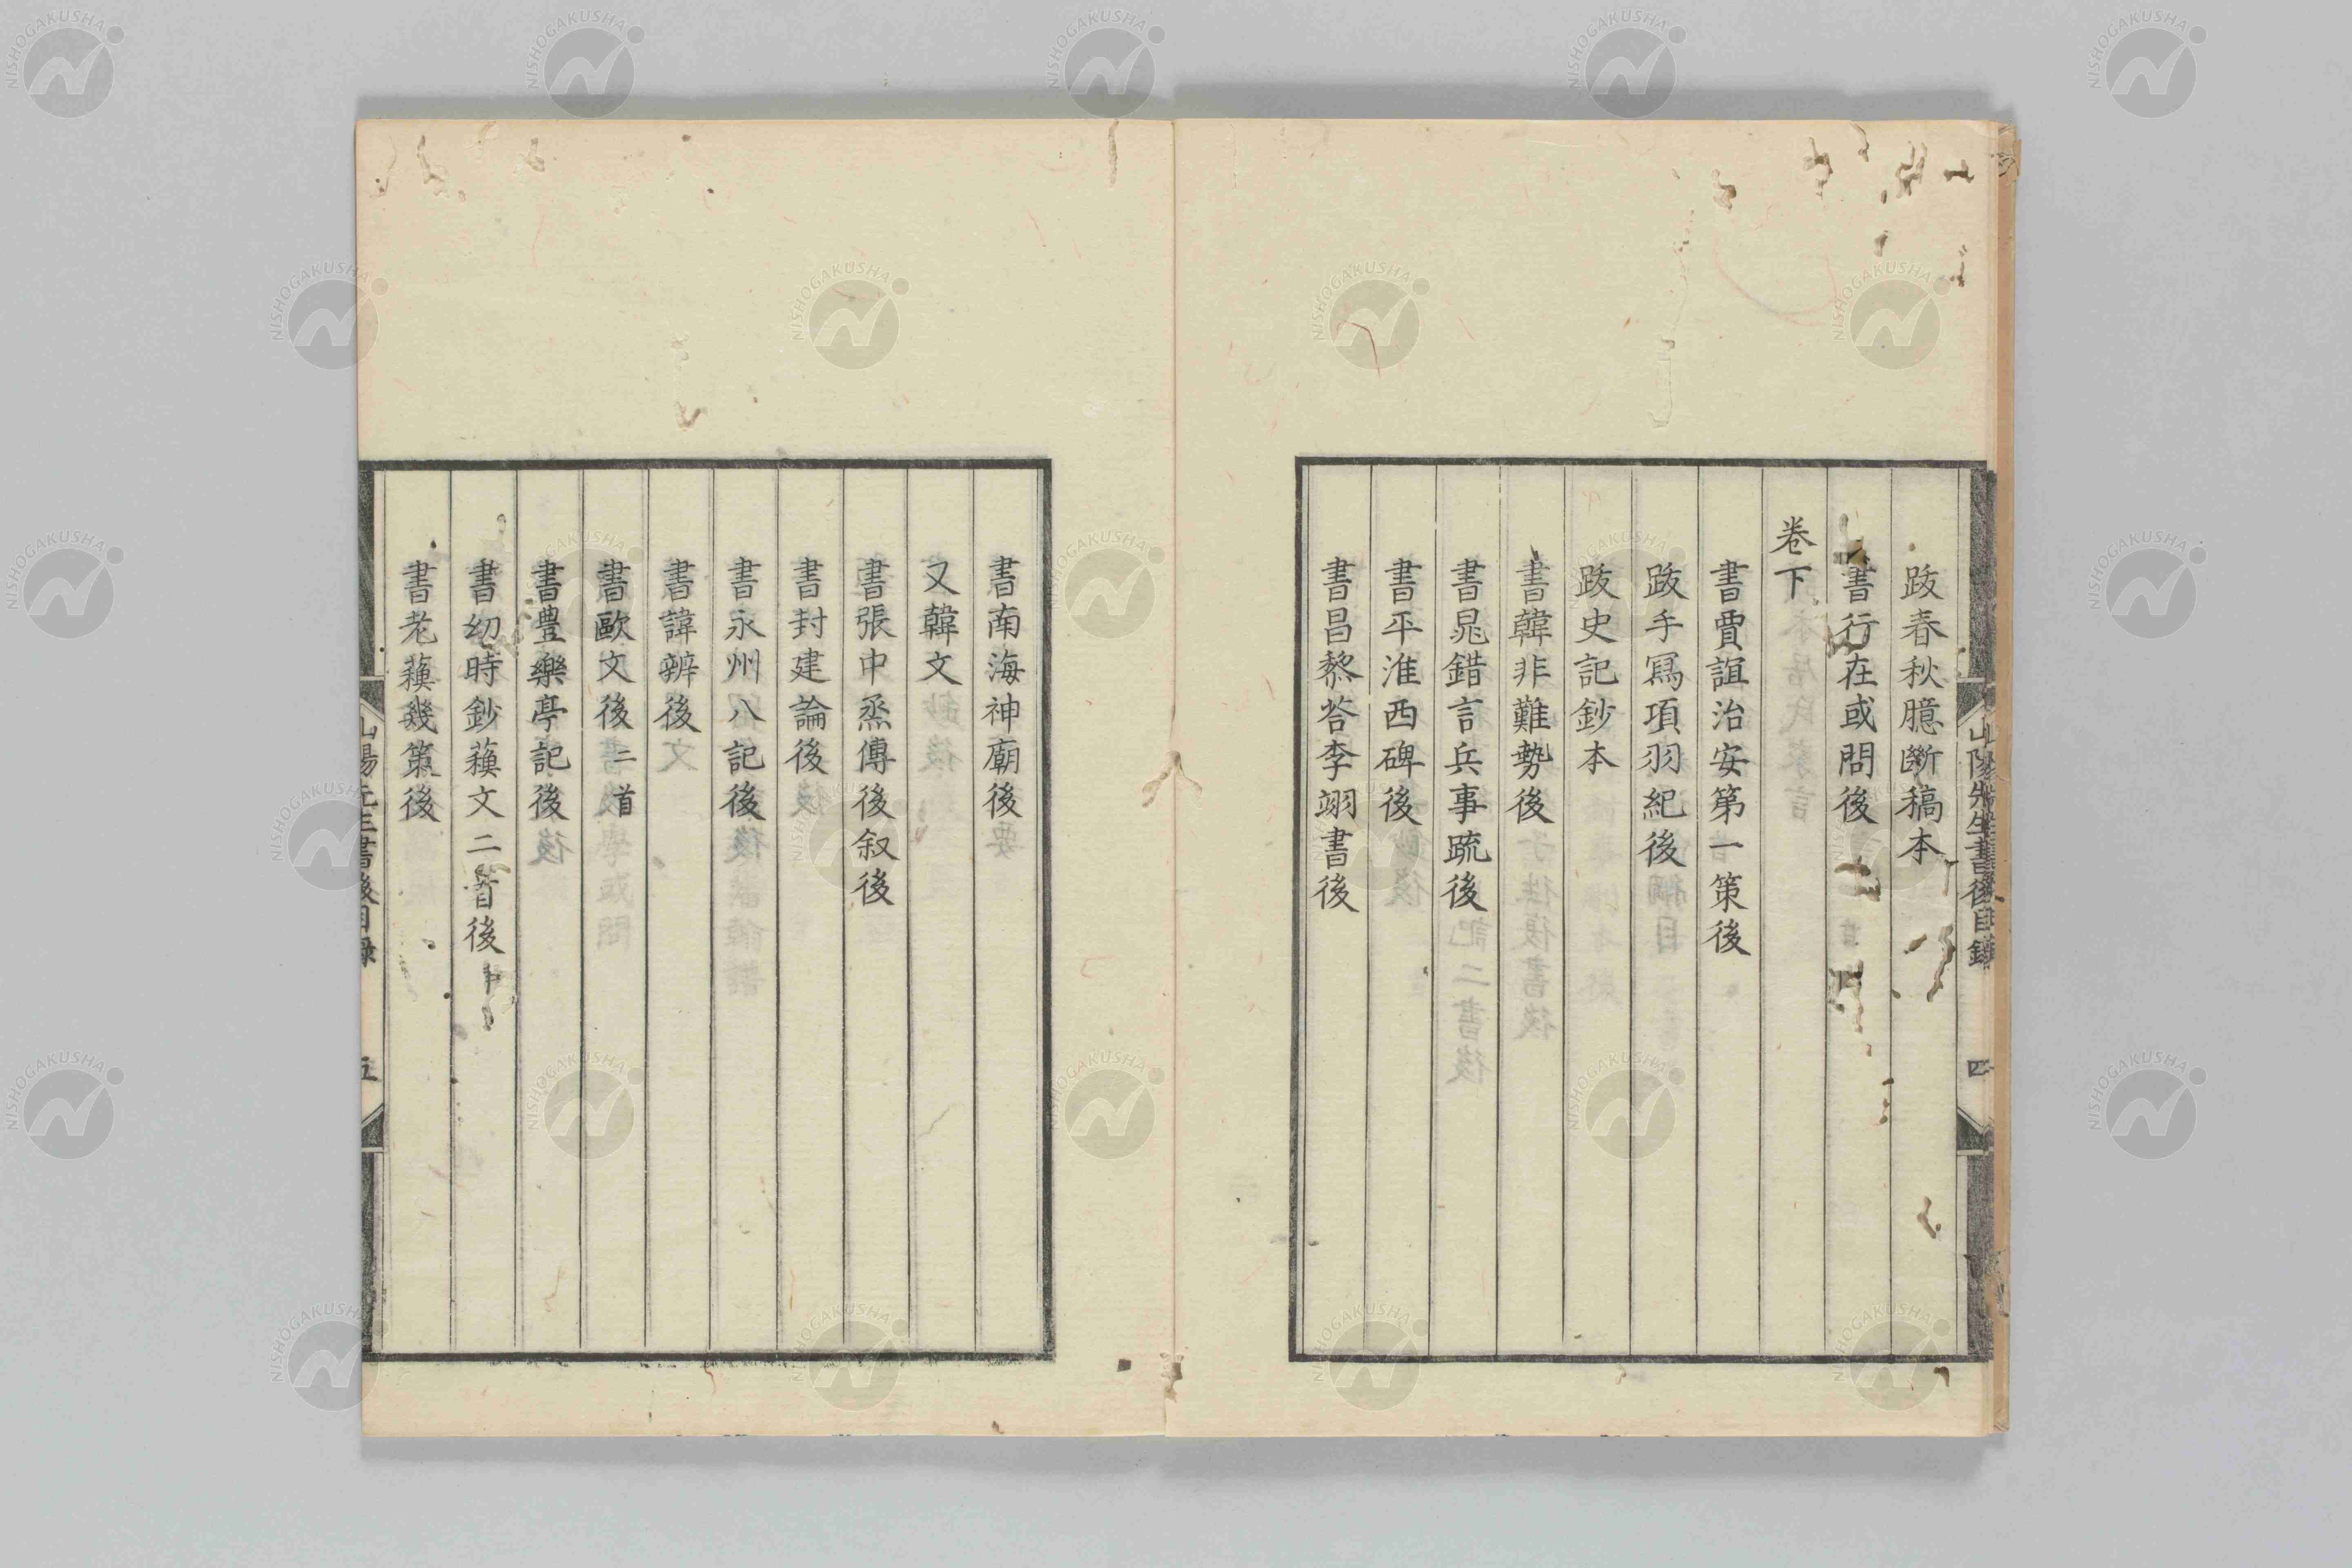 跋春秋臆斷稿本
書行在或問後
卷下
書賈誼治安第一策後
跋手冩項羽紀後
跋史記鈔本
書韓非難勢後
書晁錯言兵事疏後
書平淮西碑後
書昌黎荅李翊書後
山陽先生書後目錄
四
書南海神廟後
又韓文
書張中丞傳後叙後
書封建論後
書永州八記後
書諱辨後
書歐文後二首
書豊樂亭記後
書幼時鈔蘓文二首後
書老蘓幾策後
山陽先生書後目錄
五
NISHOGAKUSHA